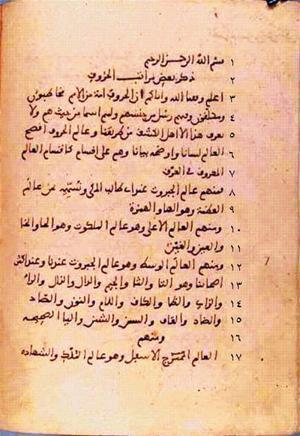 ١ بسم الله الرحمن الرحيم
٢ ذكر بعض مراتب الحروف
٣ اعلم وفقنا الله واياكم ان الحروف امة من الامم مخاطبون
٤ ومكلفون وفيهم رسل من جنسهم ولهم اسما من حيث هم ولا
٥ يعرف هذا الا اهل الكشف من طريقنا وعالم الحروف افصح
٦ العالم لسانا واوضحه بيانا وهم على اقسام كاقسام العالم
٧ المعروف في العرف
٨ فمنهم عالم الجبروت عند ابي طالب المكي ونسميه نحن عالم
٩ العظمة وهو الها والهمزة
١٠ ومنهم العالم الاعلى وهو عالم الملكوت وهو الحا والخا
١١ والعين والغين
١٢ ومنهم العالم الوسط وهو عالم الجبروت عندنا وعند اكثر
١٣ اصحابنا وهو التا والثا والجيم والدال والذال والرا
١٤ والزاي والظا والكاف واللام والنون والصاد
١٥ والضاد والقاف والسين والشين واليا الصحيحه
١٦ ومنهم
١٧ العالم الممتزج الاسفل وهو عالم الملك والشهاده